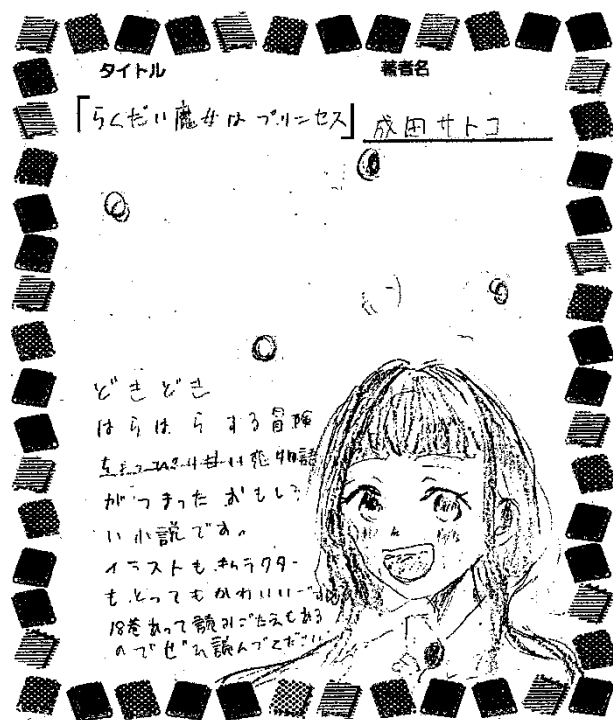 タイトル
著者名
「らくだい魔女はプリンセス」
成田サトコ
どきどき
はらはらする冒険
ちょっぴり甘い恋物語
がつまったおもしろ
い小説です。
イラストもキャラクター
もとってもかわいい
18巻あって読みごたえもある
のでぜひ読んでください